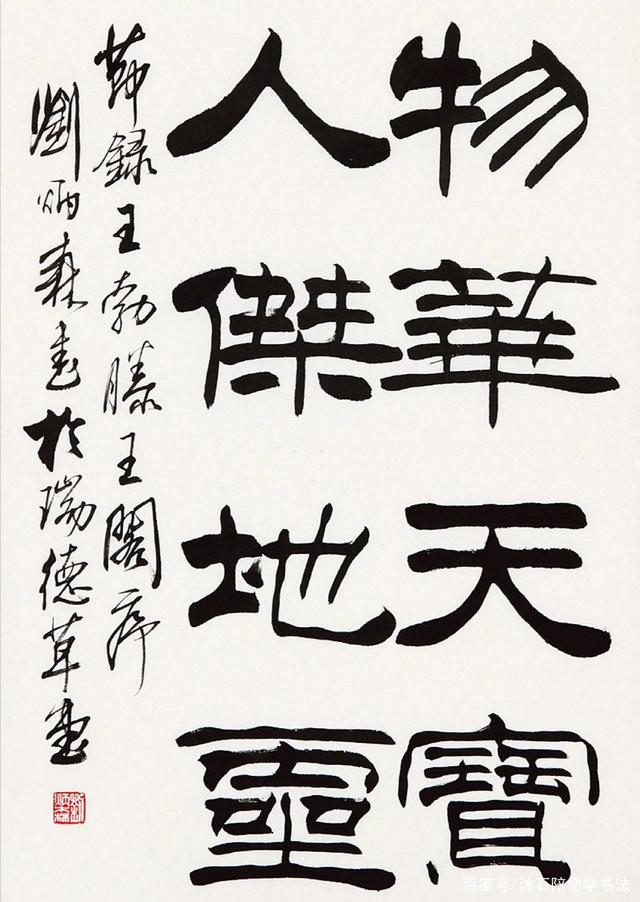 物華天寶
人傑地靈
節録王勃滕王閣序
劉炳森書於瑞德草堂
劉炳森
百家号/沐石陪您学书法